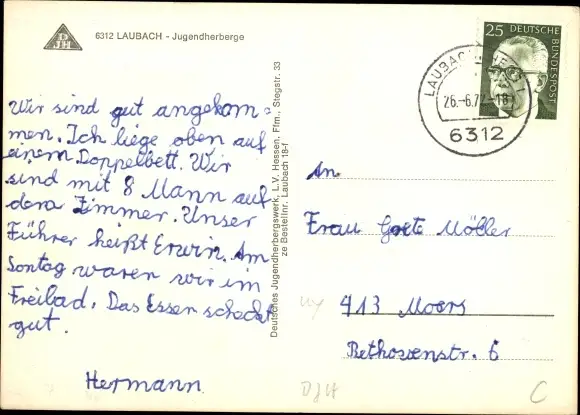 DJH
6312 LAUBACH - Jugendherberge
Wir sind gut angekom=
men. Ich liege oben auf
einem Doppelbett. Wir
sind mit 8 Mann auf
dem Zimmer. Unser
Führer heißt Erwin. Am
Sontag waren wir im
Freibad. Das Essen scheckt
gut.
Hermann
Deutsches Jugendherbergswerk, L.V. Hessen, Ffm., Stegstr. 33
ze Bestellnr. Laubach 18-f
25 DEUTSCHE
BUNDESPOST
LAUBACH
26.-6.72-18
6312
An
Frau Grete Möller
413 Moers
Bethovenstr. 6
DJH
C